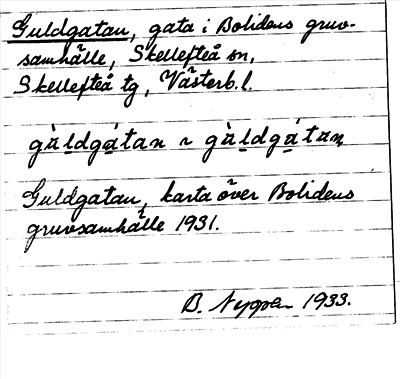 Guldgatan, gata i Bolidens gruv-
samhälle, Skellefteå sn,
Skellefteå tg, Västerb. l.
gàl̲dgá̲tan ~ gàl̲dgá̲tan̥
Guldgatan, karta över Bolidens
gruvsamhälle 1931.
B. Nygren 1933.